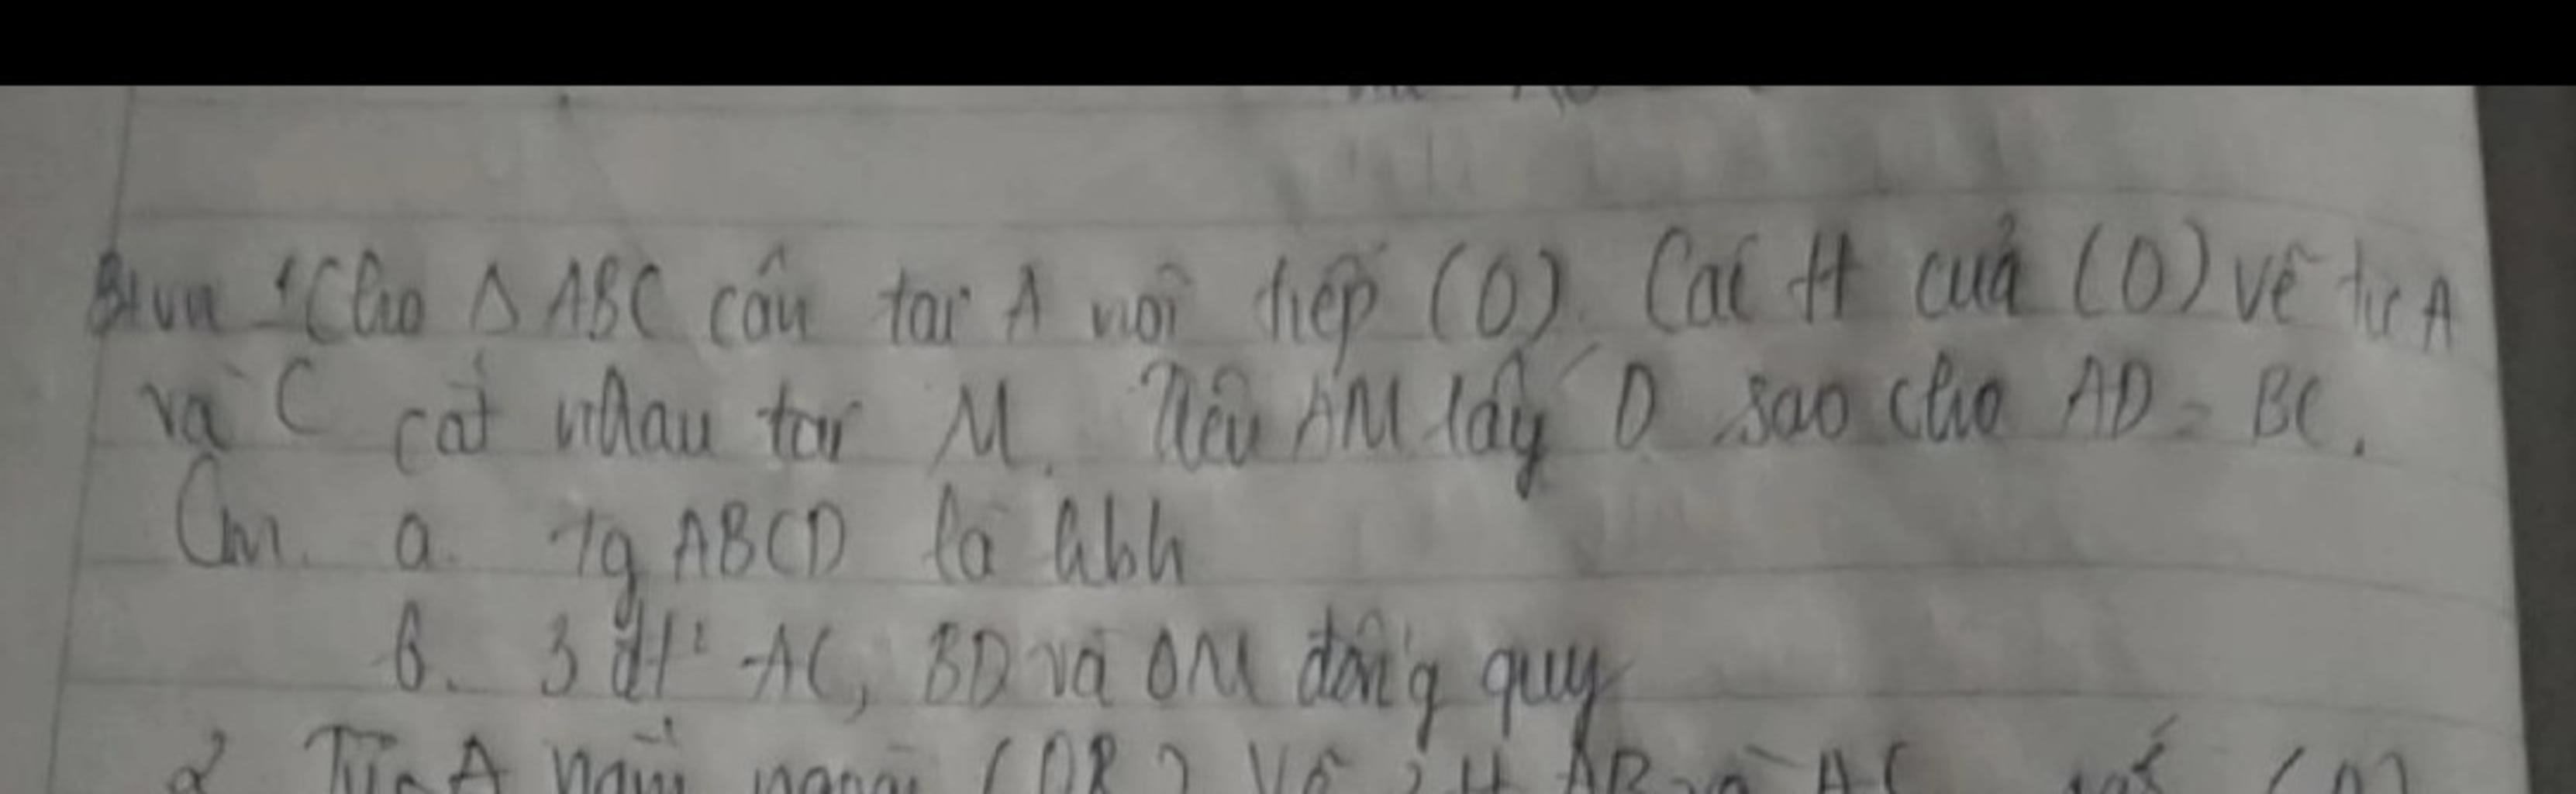 Bài 1 Cho Δ ABC cân tại A nội tiếp (O). Các tt của (O) vẽ từ A
và C cắt nhau tại M. Trên AM lấy D sao cho AD = BC.
Cm. a. Tg ABCD là hbh
b. 3 đt AC, BD và OM đồng quy
2 Từ A nằm ngoài (OR) vẽ 2 tt AB và AC